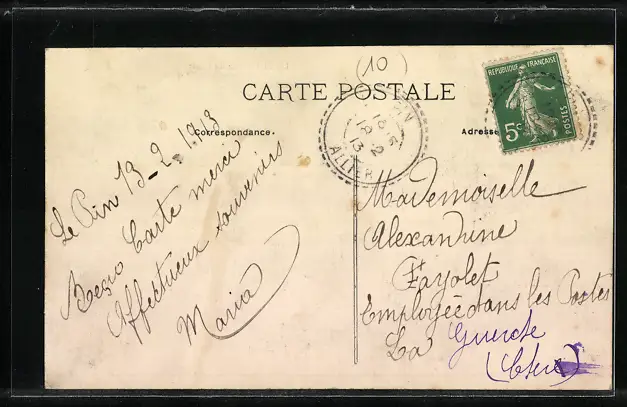 (10)
CARTE POSTALE
REPUBLIQUE FRANÇAISE
5c
POSTES
PIN
16 15
18 -2
13
ALLIER
Correspondance.
Adresse
Le Pin 13-2-1913
Reçu Carte merci
Affectueux souvenirs
Maria
Mademoiselle
Alexandrine
Fayolet
Employée dans les Postes
La Guerche
(Cher)